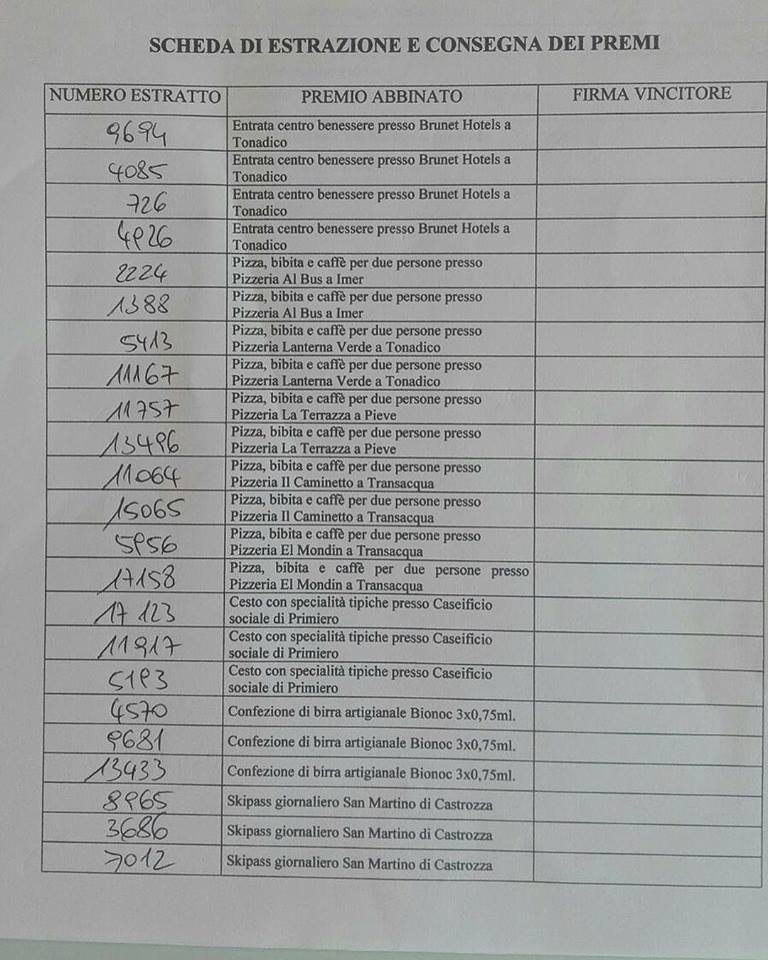 SCHEDA DI ESTRAZIONE E CONSEGNA DEI PREMI
NUMERO ESTRATTO PREMIO ABBINATO FIRMA VINCITORE
9694 Entrata centro benessere presso Brunet Hotels a
Tonadico
4085 Entrata centro benessere presso Brunet Hotels a
Tonadico
726 Entrata centro benessere presso Brunet Hotels a
Tonadico
4926 Entrata centro benessere presso Brunet Hotels a
Tonadico
2224 Pizza, bibita e caffè per due persone presso
Pizzeria Al Bus a Imer
1388 Pizza, bibita e caffè per due persone presso
Pizzeria Al Bus a Imer
5413 Pizza, bibita e caffè per due persone presso
Pizzeria Lanterna Verde a Tonadico
11167 Pizza, bibita e caffè per due persone presso
Pizzeria Lanterna Verde a Tonadico
11757 Pizza, bibita e caffè per due persone presso
Pizzeria La Terrazza a Pieve
13496 Pizza, bibita e caffè per due persone presso
Pizzeria La Terrazza a Pieve
11064 Pizza, bibita e caffè per due persone presso
Pizzeria Il Caminetto a Transacqua
15065 Pizza, bibita e caffè per due persone presso
Pizzeria Il Caminetto a Transacqua
5956 Pizza, bibita e caffè per due persone presso
Pizzeria El Mondin a Transacqua
17158 Pizza, bibita e caffè per due persone presso
Pizzeria El Mondin a Transacqua
17123 Cesto con specialità tipiche presso Caseificio
sociale di Primiero
11917 Cesto con specialità tipiche presso Caseificio
sociale di Primiero
5193 Cesto con specialità tipiche presso Caseificio
sociale di Primiero
4570 Confezione di birra artigianale Bionoc 3x0,75ml.
9681 Confezione di birra artigianale Bionoc 3x0,75ml.
13433 Confezione di birra artigianale Bionoc 3x0,75ml.
8965 Skipass giornaliero San Martino di Castrozza
3686 Skipass giornaliero San Martino di Castrozza
7012 Skipass giornaliero San Martino di Castrozza